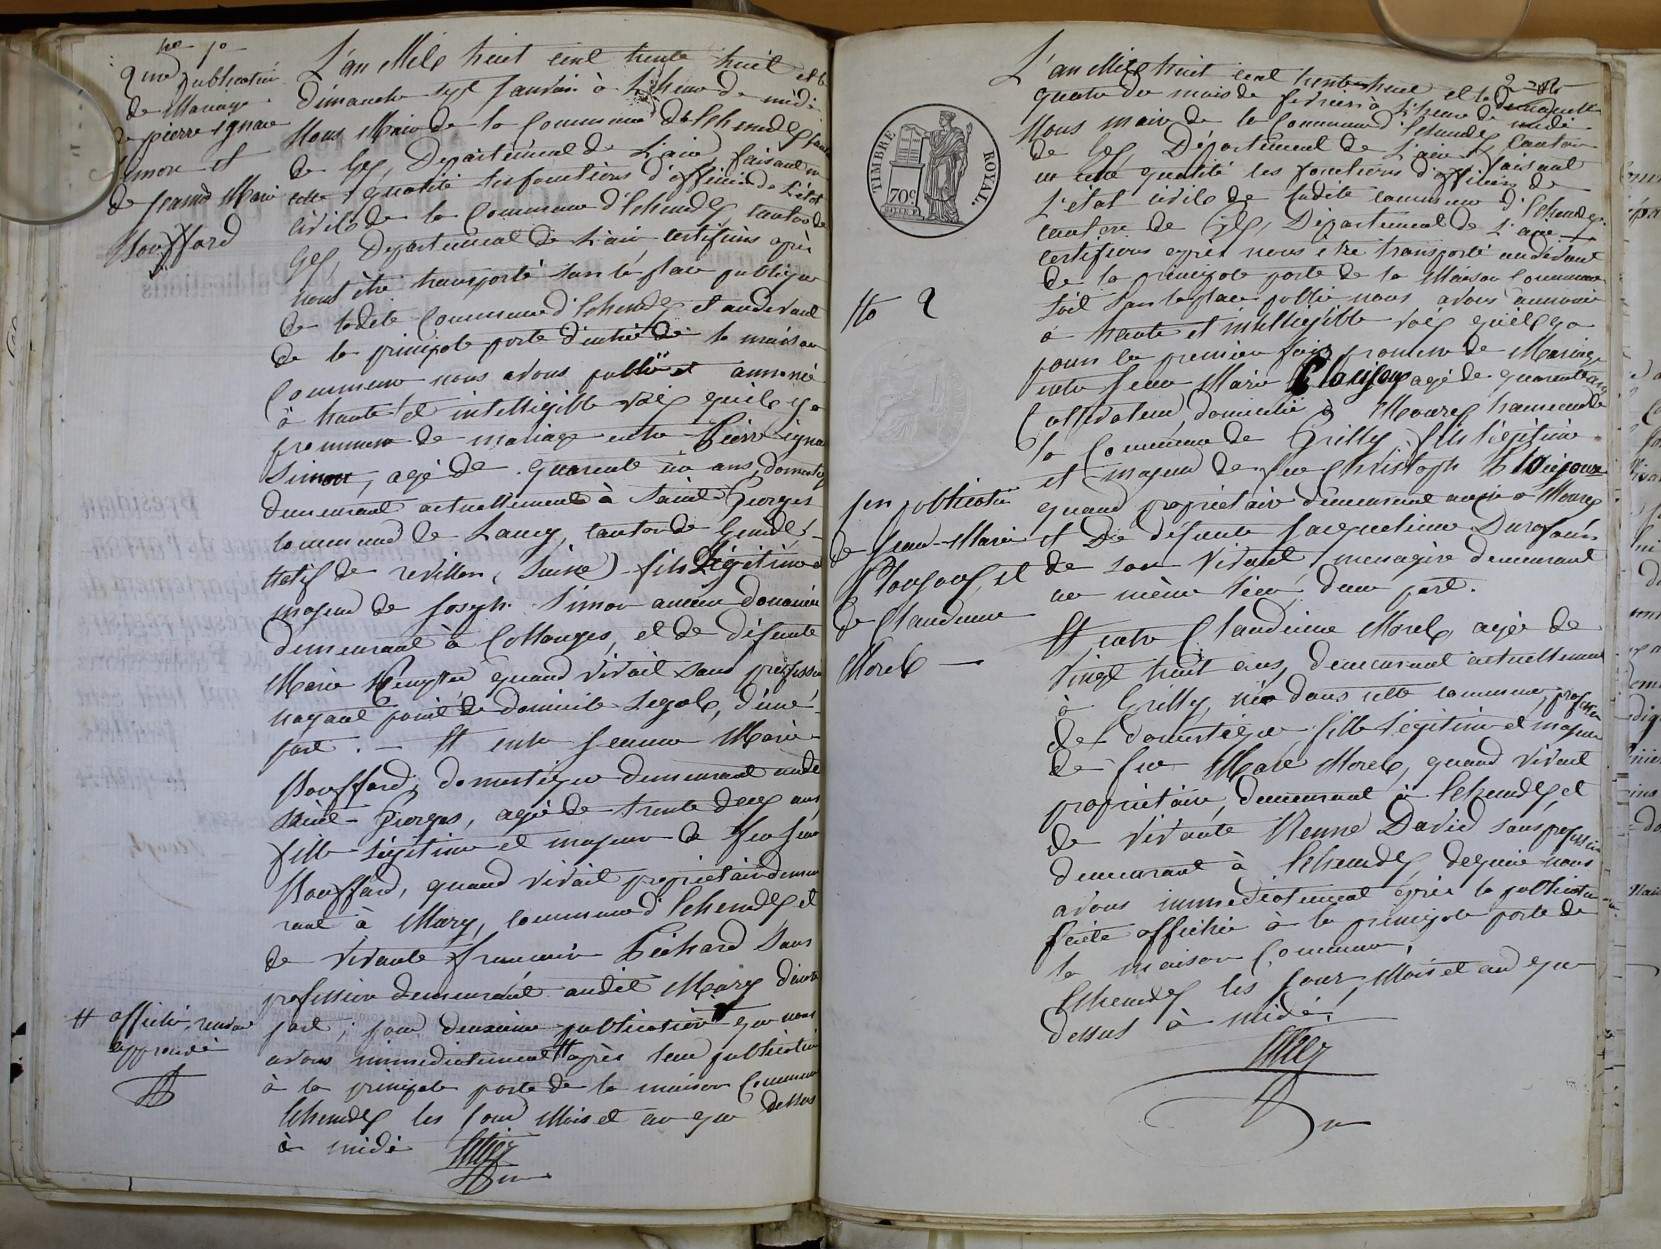 No 1o
2me publication
de Mariage
de pierre ignace
Simon et
de Jeanne Marie
Bouffard
L'an Mil huit cent trente huit et le
dimanche sept Janvier à l'heure de midi
Nous Maire de la Commune d'Echenevex Canton
de Gex, Département de L'ain faisant en
cette qualité les fonctions d'officier de l'état
civil de la Commune d'Echenevex, canton de
Gex, Département de L'ain certifions après
nous être transporté sur la place publique
de ladite Commune d'Echenevex et audevant
de la principale porte d'entrée de la maison
Commune nous avons publié et annoncé
à haute et intelligible voix qu'il y a
promesse de mariage entre Pierre ignace
Simon, agé de quarente un ans, domestique
demeurant actuellement à Saint Georges
commune de Lancy, canton de Genève
(Suisse) fils Légitime et
majeur de Joseph Simon ancien douanier
demeurant à Collonges, et de défunte
Marie quand vivait sans profession
nayant point de domicile Legale, d'une
part. – Et entre Jeanne Marie
Bouffard, domestique demeurant audit
Saint-Georges, agée de trente deux ans
fille Légitime et majeure de feu Jean
Bouffard, quand vivait propriétaire demeu
rant à Mury, commune d'Echenevex et
de vivante françoise Péchard sans
profession demeurant audit Mury d'autre
part; pour deuxième publication que nous
avons immédiatement # après leur publication
à la principale porte de la maison Commune
Echenevex les Jour Mois et an que dessus
à midi
# affiché, renvoi
approuvé
TIMBRE ROYAL.
70c
No 2
1ère publication
de Jean-Marie
Plonjoux, et
de Claudine
Morel —
L'an Mil huit cent trente huit et le dimanche
quatre du mois de fevrier à l'heure de midi
Nous maire de la Commune d'Echenevex Canton
de Gex Département de L'ain faisant
en cette qualité les fonctions d'officier de
L'état civil de ladite commune d'Echenevex
canton de Gex, Département de L'ain
certifions après nous être transporté audevant
de la principale porte de la Maison Commune
soit sur la place public nous avons annoncé
à haute et intelligible voix qu'il y a
pour la première fois promesse de Mariage
entre Jean Marie Plonjoux agé de quarente ans
Cultivateur domicilié à Mourex hameau de
la Commune de Grilly, fils Légitime
et majeur de feu Christoph Plonjoux
quand propriétaire demeurant audit Mourex
et De défunte Jacqueline Durafour
de son Vivant, menagère demeurant
au même lieu d'une part.
Et entre Claudine Morel, agée de
Vingt huit ans, demeurant actuellement
à Grilly, née dans cette commune, profession
de Domestique fille Légitime et majeure
de feu Marc Morel, quand vivait
propriétaire, demeurant à Echenevex, et
de vivante Renne David sans profession
demeurant à Echenevex, de quoi nous
avons immédiatement après la publication
faite affiché à la principale porte de
la maison Commune,
Echenevex les Jour, Mois et an que
dessus à midi,